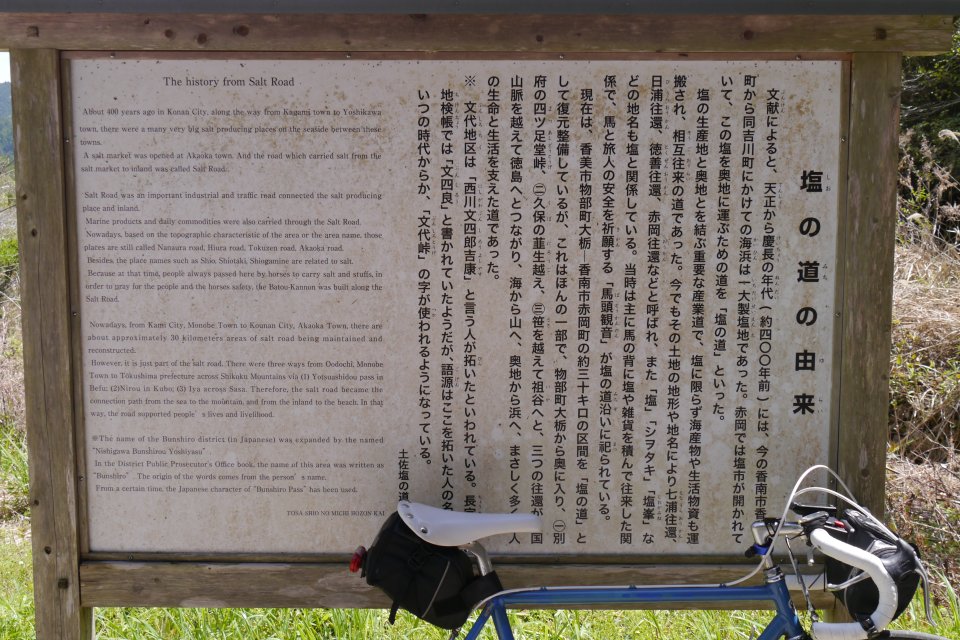 The history from Salt Road
About 400 years ago in Konan City, along the way from Kagami town to Yoshikawa
town, there were a many very big salt producing places on the seaside between these
towns.
A salt market was opened at Akaoka town. And the road which carried salt from the
salt market to inland was called Salt Road.
Salt Road was an important industrial and traffic road connected the salt producing
place and inland.
Marine products and daily commodities were also carried through the Salt Road.
Nowadays, based on the topographic characteristic of the area or the area name, those
places are still called Nanaura road, Hiura road, Tokuzen road, Akaoka road.
Besides, the place names such as Shio, Shiotaki, Shiogamine are related to salt.
Because at that time, people always passed here by horses to carry salt and stuffs, in
order to pray for the people and the horses safety, the Batou-Kannon was built along the
Salt Road.
Nowadays, from Kami City, Monobe Town to Kounan City, Akaoka Town, there are
about approximately 30 kilometers areas of salt road being maintained and
reconstructed.
However, it is just part of the salt road. There were three ways from Oodochi, Monobe
Town to Tokushima prefecture across Shikoku Mountains via (1) Yotsuashidou pass in
Befu; (2)Nirou in Kubo; (3) Iya across Sasa. Therefore, the salt road became the
connection path from the sea to the mountain, and from the inland to the beach. In that
way, the road supported people's lives and livelihood.
※The name of the Bunshiro district (in Japanese) was expanded by the named
"Nishigawa Bunshirou Yoshiyasu".
In the District Public Prosecutor's Office book, the name of this area was written as
"Bunshiro". The origin of the words comes from the person's name.
From a certain time, the Japanese character of "Bunshiro Pass" has been used.
TOSA SHIO NO MICHI HOZON KAI
塩の道の由来
文献によると、天正から慶長の年代(約四〇〇年前)には、今の香南市香
町から同吉川町にかけての海浜は一大製塩地であった。赤岡では塩市が開かれて
いて、この塩を奥地に運ぶための道を「塩の道」といった。
塩の生産地と奥地とを結ぶ重要な産業道で、塩に限らず海産物や生活物資も運
搬され、相互往来の道であった。今でもその土地の地形や地名により七浦往還、
日浦往還、徳善往還、赤岡往還などと呼ばれ、また「塩」「シヲタキ」「塩峯」な
どの地名も塩と関係している。当時は主に馬の背に塩や雑貨を積んで往来した関
係で、馬と旅人の安全を祈願する「馬頭観音」が塩の道沿いに祀られている。
現在は、香美市物部町大栃―香南市赤岡町の約三十キロの区間を「塩の道」と
して復元整備しているが、これはほんの一部で、物部町大栃から奥に入り、㈠別
府の四ツ足堂峠、㈡久保の韮生越え、㈢笹を越えて祖谷へと、三つの往還が
国
山脈を越えて徳島へとつながり、海から山へ、奥地から浜へ、まさしく多
人
の生命と生活を支えた道であった。
※ 文代地区は「西川文四郎吉康」と言う人が拓いたといわれている。長
地検帳では「文四良」と書かれていたようだが、語源はここを拓いた人の
いつの時代からか、「文代峠」の字が使われるようになっている。
土佐塩の道